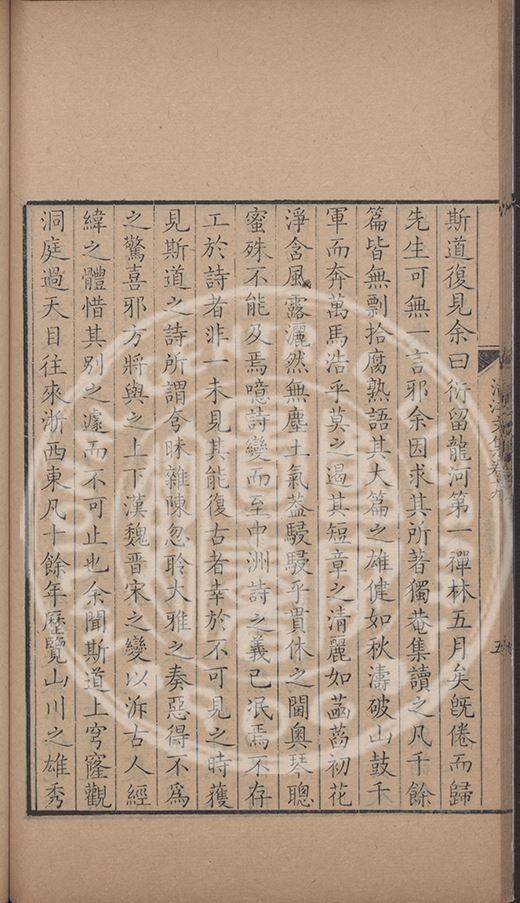 斯道復見余曰衍留龍河第一禪林五月矣旣倦而歸
先生可無一言邪余因求其所著獨菴集讀之凡千餘
篇皆無剽拾腐熟語其大篇之雄健如秋濤破山鼓千
軍而奔萬馬浩乎莫之遏其短章之清麗如菡萏初花
淨含風露灑然無塵土氣葢駸駸乎貫休之閫奧琴聰
蜜殊不能及焉噫詩變而至中洲詩之義已泯焉不存
工於詩者非一未見其能復古者幸於不可見之時獲
見斯道之詩所謂夸昧雜陳忽聆大雅之奏惡得不爲
之驚喜邪方將與之上下漢魏晉宋之變以泝古人經
緯之體惜其别之遽而不可止也余聞斯道上穹窿觀
洞庭過天目往來浙西東凡十餘年歷覽山川之雄秀